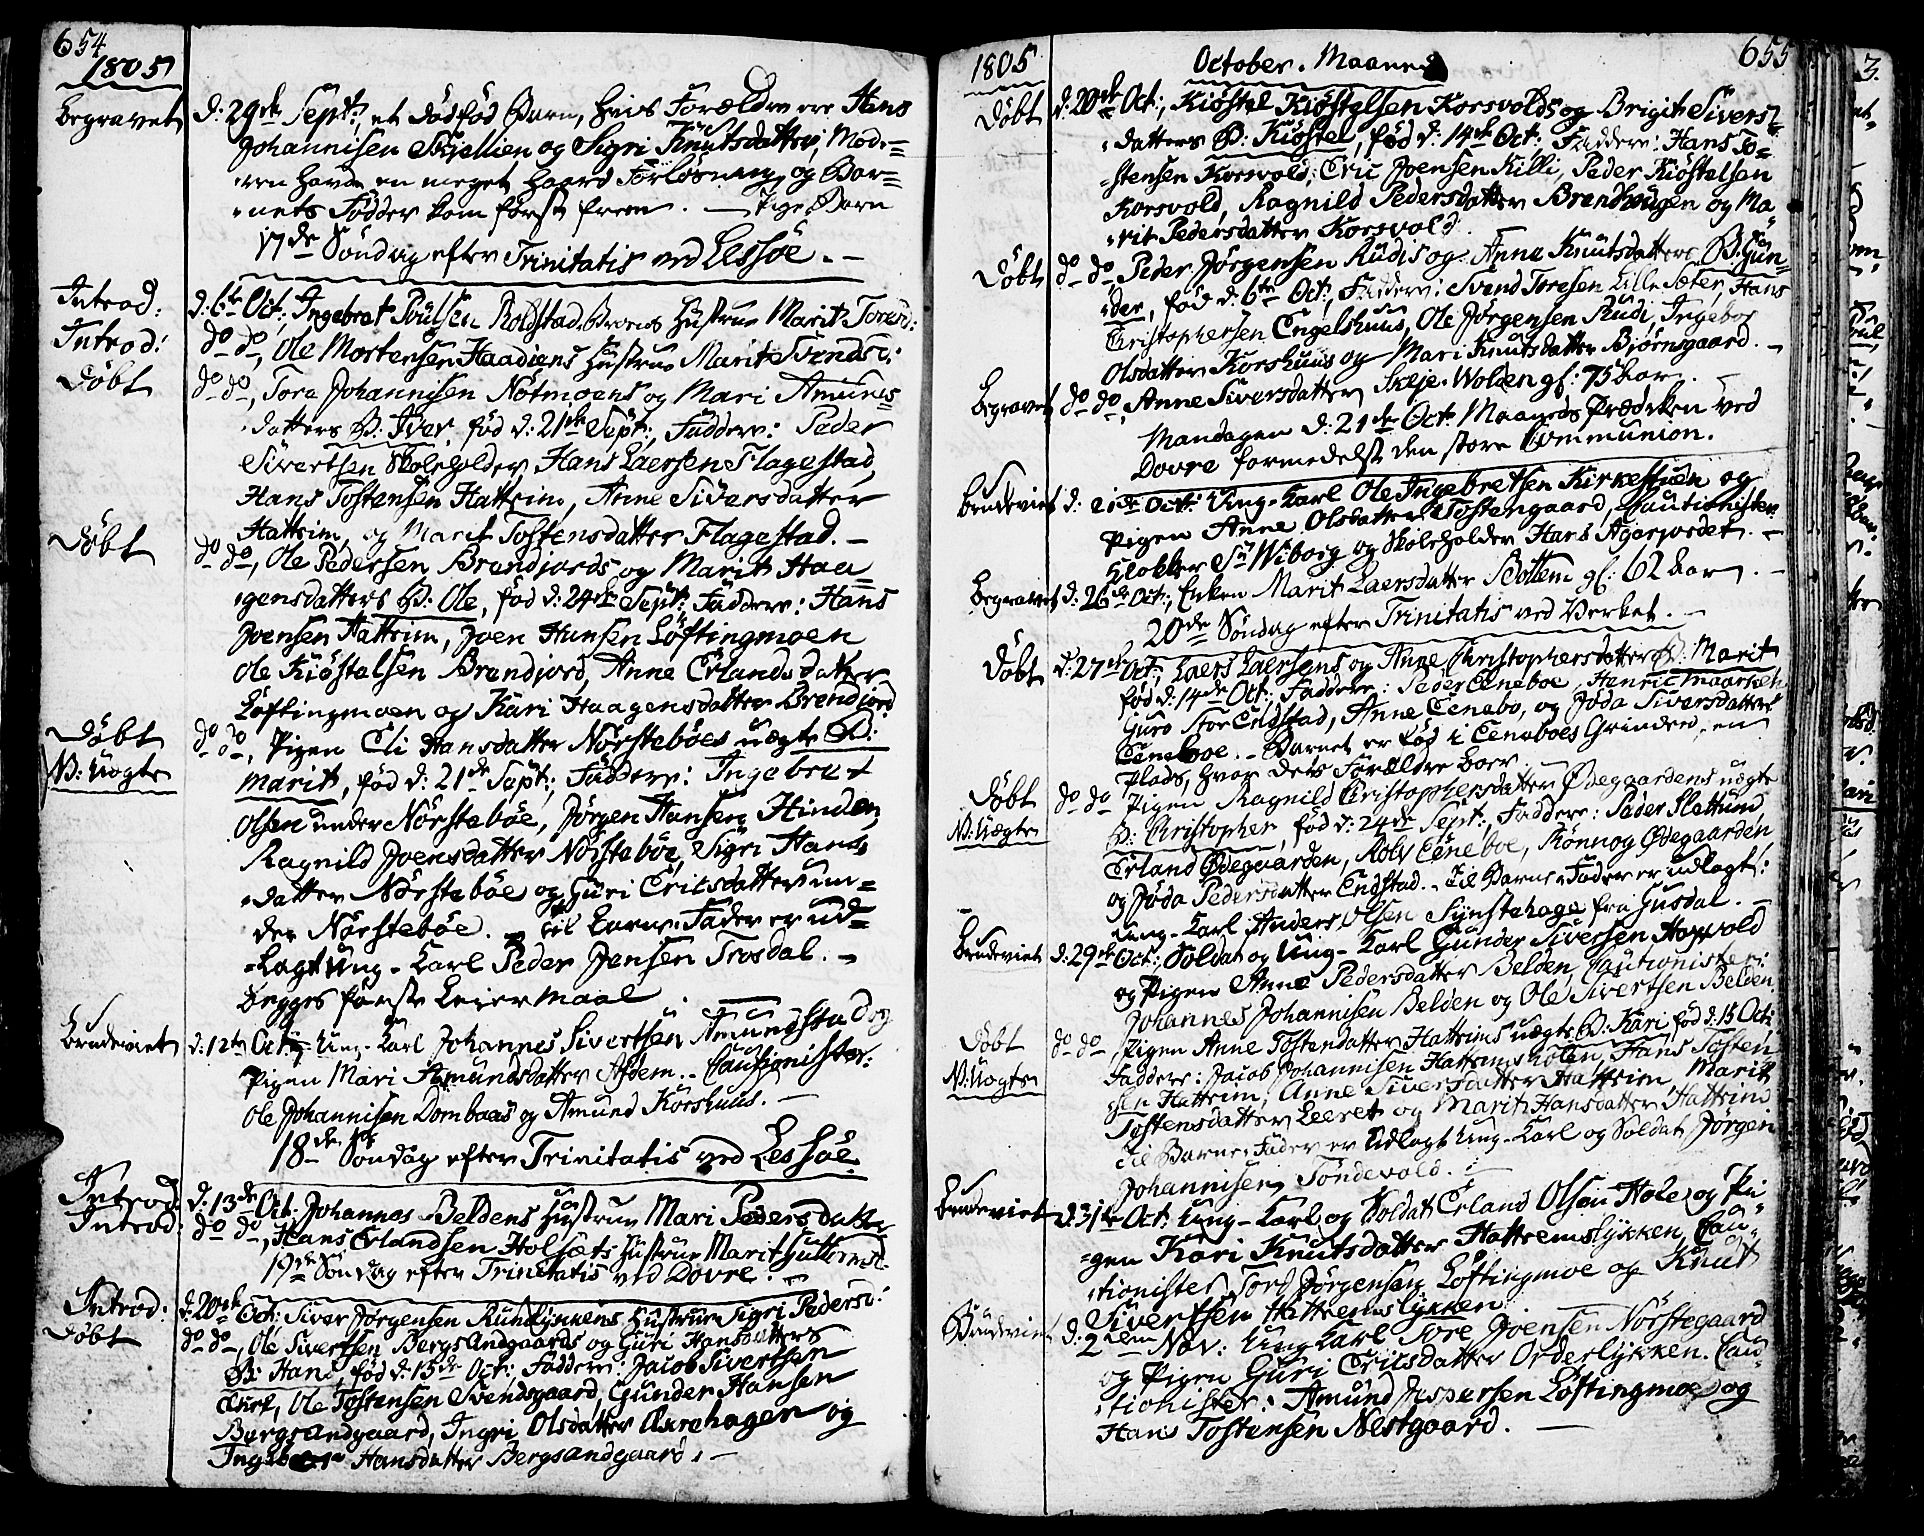 654
1805
Begravet d: 29de Sept:, et dödföd Barn, hvis Forældre ere Hans
Johannisen Skiellien og Sigri Knutsdatter, Mode=
=ren havde en meget haard Forlösning, og Bar=
=nets Födder kom först frem. — Pige Barn
17de Söndag efter Trinitatis ved Lessöe. —
Introd: d: 6te Oct:, Ingebret Poulsen Roldstad Hustrue Marit Toresd:
Introd: do do, Ole Mortensen Haadiens Hustrue Marit Svendsd:
Döbt do do, Tore Johannisen Nötmoens og Mari Amunds=
datters B: Iver, föd d: 21de Sept:, Faddere: Peder
Sivertsen Skoleholder, Hans Laersen Flagestad,
Hans Tostensen Hattrim, Anne Siversdatter
Hattrim, og Marit Tostensdatter Flagestad. —
Döbt do do, Ole Pedersen Brendjords og Marit Haa=
=gensdatters B: Ole, föd d: 24de Sept: Faddere: Hans
Joensen Hattrim, Joen Hansen Löftingmoen
Ole Kiöstelsen Brendjord, Anne Erlandsdatter
Löftingmoen og Kari Haagensdatter Brendjord
Döbt do do, Pigen Eli Hansdatter Nörsteböes uægte B:
N: Uægte Marit, föd d: 21de Sept:, Faddere: Ingebret
Olsen under Nörsteböe, Jörgen Hansen Hinden,
Ragnild Joensdatter Nörsteböe, Sigri Hans=
=datter Nörsteböe og Guri Ericsdatter un=
der Nörsteböe. — Til Barne-Fader er ud=
=lagt Ung-Karl Peder Jensen Trosdal. —
Begges första Leiermaal
Brudeviet d: 12te Oct: Ung-Karl Johannes Sivertsen Amundstad og
Pigen Mari Amundsdatter Afdem. - Cautionister:
Ole Johannisen Dombaas og Amund Korshuus. —
18de Söndag efter Trinitatis ved Lessöe.
Introd: d: 13de Oct. Johannes Beldens Hustrue Mari Pedersdatter
Introd: do do, Hans Erlandsen Holsæts Hustrue Marit Guttormsd:
19de Söndag efter Trinitatis ved Dovre. —
Introd: d: 20de Oct: Siver Jörgensen Rundlykkens Hustrue Sigri Pedersd:
Döbt do do, Ole Sivertsen Bergsandgaards og Guri Hansdatters
B: Hans, föd d: 15de Oct:, Faddere: Jacob Sivertsen
Ole Tostensen Svendsgaard, Gunder Hansen
Bergsandgaard, Ingri Olsdatter og
Hansdatter Bergsandgaard. —
1805 October. Maaned 655
Döbt d: 20de Oct:, Kiöstel Kiöstelsen Korsvolds og Brigit Sivers=
datters B: Kiöstel, föd d: 14de Oct: Faddere: Hans To=
=stensen Korsvold, Eric Joensen Killi, Peder Kiöstelsen
Korsvold, Ragnild Pedersdatter Brendhaugen og Ma=
=rit Pedersdatter Korsvold.
Döbt do do Peder Jörgensen Rudis og Anne Knutsdatters B: Gun=
=der, föd d: 6te Oct:, Faddere: Svend Toresen Lille Sæter, Hans
Christophersen Engelshuus, Ole Jörgensen Rudi, Ingebor
Olsdatter Korshuus og Mari Knutsdatter Björnsgaard. —
Begravet do do, Anne Siversdatter Skeje-Wolden gl: 75 Aar. —
Mandagen d: 21de Oct: Maaneds Prædiken ved
Dovre formedelst den store Communion.
Brudeviet d: 21de Oct: Ung-Karl Ole Ingebretsen Kirkestuen og
Pigen Anne Olsdatter Tostengaard, Cautionister:
Klokker Sr Wiborg og Skoleholder Hans Agerjordet. —
Begravet d: 26de Oct:, Enken Marit Laersdatter Bottem gl: 62 Aar. —
20de Söndag efter Trinitatis ved Verket. —
Döbt d: 27de Oct:, Laers Laersens og Anne Christophersdatters B: Marit
föd d: 14de Oct: Faddere: Peder Eeneboe, Henric
Guro Stor Endstad, Anne Eenebo, og Jöda Siversdatter
Eeneboe. - Barnet er föd i Eeneboes Grinden, en
Plads, hvor dets Forældre boer. —
Döbt do do Pigen Ragnild Christophersdatter Ödegaardens uægte
N: Uægte B: Christopher, föd d: 24de Sept: Faddere: Peder Slettum
Erland Ödegaarden, Rolv Eeneboe, Rönnog Ödegaarden
og Jöda Pedersdatter Endstad. - Til Barne-Fader er udlagt:
Ung-Karl Anders Olsen Synstehage fra Gusdal. —
Brudeviet d: 29de Oct:, Soldat og Ung-Karl Gunder Siversen
og Pigen Anne Pedersdatter Belden, Cautionister:
Johannes Johannisen Belden og Ole Sivertsen Belden
Döbt do do, Pigen Anne Tostensdatter Hattrims uægte B: Kari, föd d: 15 Oct:
N: Uægte Faddere: Jacob Johannisen Hattrimsholen, Hans Tosten=
=sen Hattrim, Anne Siversdatter Hattrim, Marit
Tostensdatter Leeret og Marit Hansdatter Hattrim
Til Barne-Fader er Udlagt Ung-Karl og Soldat Jörgen
Johannisen Töndevold. —
Brudeviet d: 31te Oct: Ung-Karl og Soldat Erland Olsen Hole og Pi=
=gen Kari Knutsdatter Hattremslykken, Cau=
=tionister, Tord Jörgensen Löftingmoe og Knut
Sivertsen Hattremslykken.
Brudeviet d: 2den Nov: Ung Karl Tore Joensen Nörstegaard
og Pigen Guri Ericsdatter Orderlykken. Cau=
=tionister: Amund Jespersen Löftingmoe og
Hans Tostensen Nestgaard. —